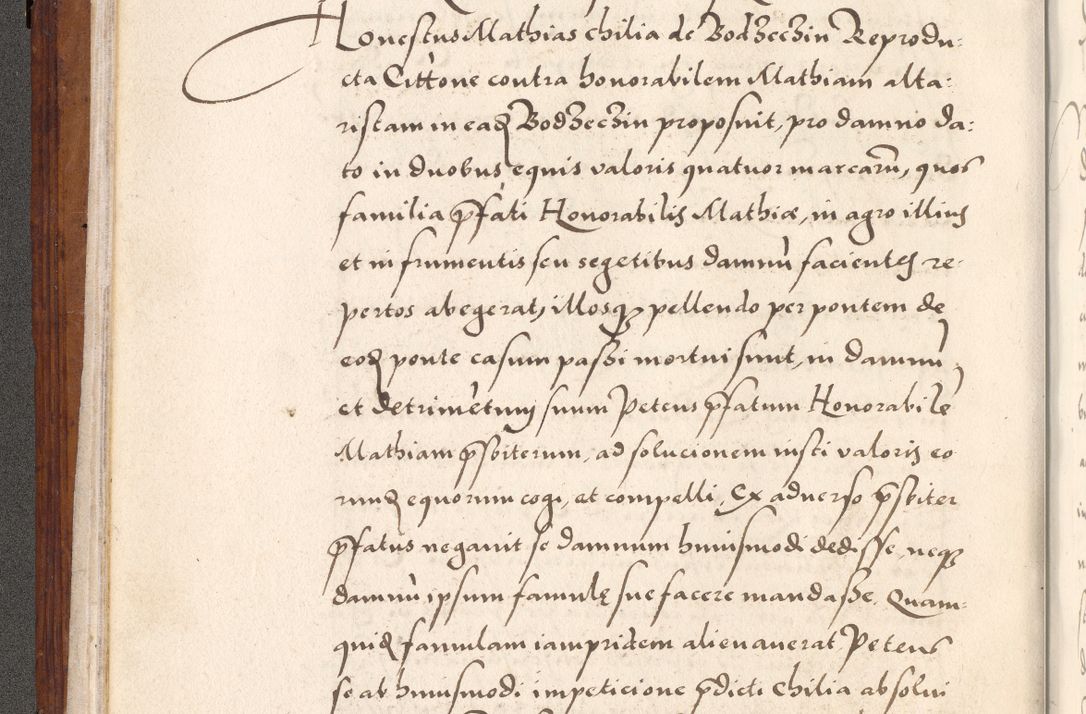 Honestus Mathias Chilia de Bodzeczin Reprodu:
cta Cittone contra honorabilem Mathiam alta:
ristam in eadꝫ Bodzeczin proposuit, pro damno da:
to in duobus equis valoris quatuor marcarū, quos
familia p̄fati Honorabilis Mathiæ, in agro illius
et in frumentis seu segetibus damnū facientes re:
pertos abegerat, illosqꝫ pellendo per pontem de
eodꝫ ponte casum passi mortui sunt, in damnū
et detrimētum suum Petens p̄fatum Honorabilē
Mathiam p̄sbiterum, ad solucionem iusti valoris eo
rundꝫ equorum cogi, et compelli, Ex adverso p̄sbiter
p̄fatus negavit se damnum huiusmodi dedisse, neqꝫ
damnū ipsum famulę sue facere mandasse. Quam:
quidꝫ famulam iampridem alienaverat Petens
se ab huiusmodi impeticione p̄dicti Chilia absolui